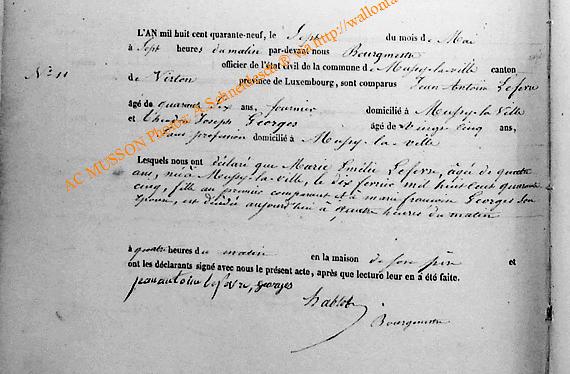 L'AN mil huit cent quarante-neuf, le Sept du mois de Mai
à Sept heures du matin par-devant nous Bourgmestre
officier de l'état civil de la commune de Mussy-la-ville canton
N° 11
de Virton province de Luxembourg, sont comparus Jean Antoine Lefevre
âgé de quarante six ans, fournier domicilié à Mussy-la-Ville
et Joseph Georges âgé de vingt cinq ans,
sans profession domicilié à Mussy-la-ville
Lesquels nous ont déclaré que Marie Emélie Lefevre, âgée de quatre
ans, née à Mussy-la-ville, le dix fevrier mil huit cent quarante
cinq, fille du premier comparant et de marie françoise Georges son
épouse, est décédée aujourd'hui à quatre heures du matin
à quatre heures du matin en la maison de son père et
ont les déclarants signé avec nous le présent acte, après que lecture leur en a été faite.
jean antoine lefevre, georges
Bourgmestre
AC MUSSON Photos: A.Schneidesch @ http://wallonia